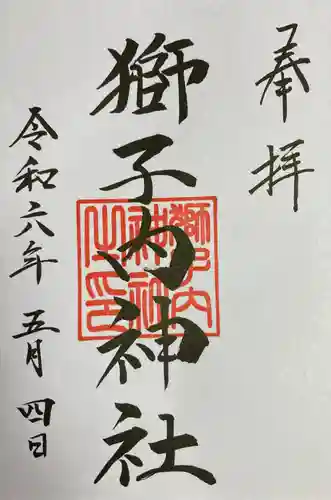 奉拝
獅子内神社
獅子内
神社
之印
令和六年五月四日